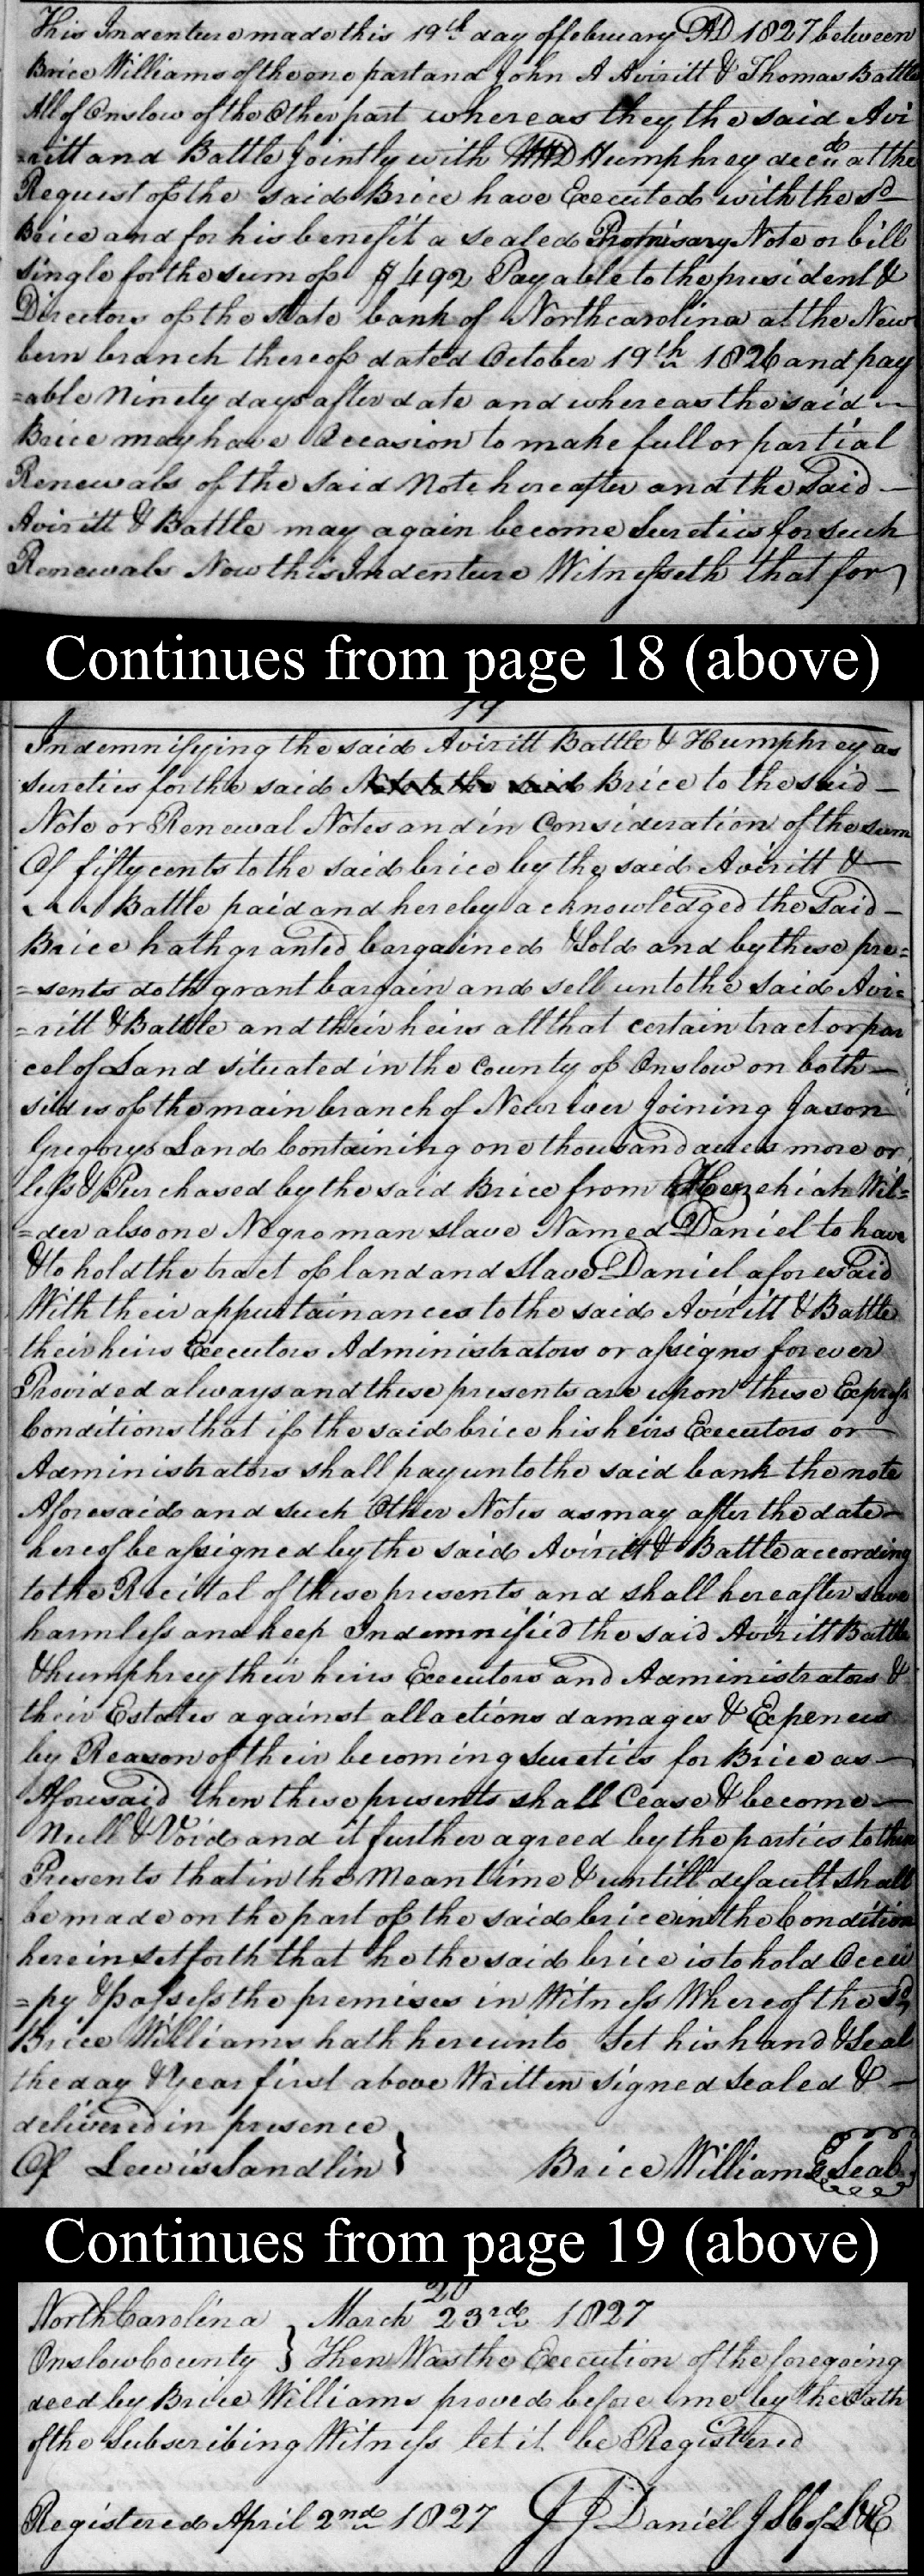 This Indenture made this 19th day of february AD 1827 between
Brice Williams of the one part and John A Aviritt & Thomas Battle
All of Onslow of the Other part whereas they the said Avi
=ritt and Battle Jointly with WD Humphrey decd at the
Request of the said Brice have Executed with the sd
Brice and for his benefit a sealed Promisary Note or bill
single for the sum of $492 Payable to the president &
Directors of the state bank of North carolina at the New
bern branch thereof dated October 19th 1826 and pay
=able Ninety days after date and whereas the said
Brice may have Occasion to make full or partial
Renewals of the said Note hereafter and the Said
Aviritt & Battle may again become Sureties for such
Renewals Now this Indenture Witnesseth that for
Continues from page 18 (above)
19
Indemnifying the said Aviritt Battle & Humphrey as
sureties for the said Note to the said Brice to the said
Note or Renewal Notes and in Consideration of the sum
Of fifty cents to the said brice by the said Aviritt &
Battle paid and hereby acknowledged the Said
Brice hath granted bargained & Sold and by these pre=
=sents doth grant bargain and sell unto the said Avi=
=ritt & Battle and their heirs all that certain tract or par
cel of Land situated in the County of Onslow on both
sides of the main branch of New river Joining Jason
Gregorys Land Containing one thousand acres more or
less & Purchased by the said Brice from Hezehiah Wil=
=der also one Negro man slave Named Daniel to have
& to hold the tract of land and Slave Daniel aforesaid
With their appurtainances to the said Aviritt & Battle
their heirs Executors Administrators or assigns forever
Provided always and these presents are upon these Express
Conditions that if the said brice his heirs Executors or
Administrators shall pay unto the said bank the note
Aforesaid and such Other Notes as may after the date
hereof be assigned by the said Aviritt & Battle according
to the Recital of these presents and shall hereafter save
harmless and keep Indemnified the said Aviritt Battle
& humphrey their heirs Executors and Administrators &
their Estates against all actions damages & Expences
by Reason of their becoming Sureties for Brice as
Aforesaid then these presents shall Cease & become
Null & Void and it further agreed by the parties to these
Presents that in the Mean time & untill default shall
be made on the part of the said brice in the Condition
herein set forth that he the said brice is to hold Occu
=py & possess the premises in Witness Whereof the Sd
Brice Williams hath hereunto Set his hand & Seal
the day & Year first above Written signed sealed &
delivered in presence
Of Lewis Sandlin } Brice Williams Seal
Continues from page 19 (above)
20
North Carolina } March 23rd 1827
Onslow County } Then Was the Execution of the foregoing
deed by Brice Williams proved before me by the Oath
of the Subscribing Witness let it be Registered
Registered April 2nd 1827 JJ Daniel JSC of L & E